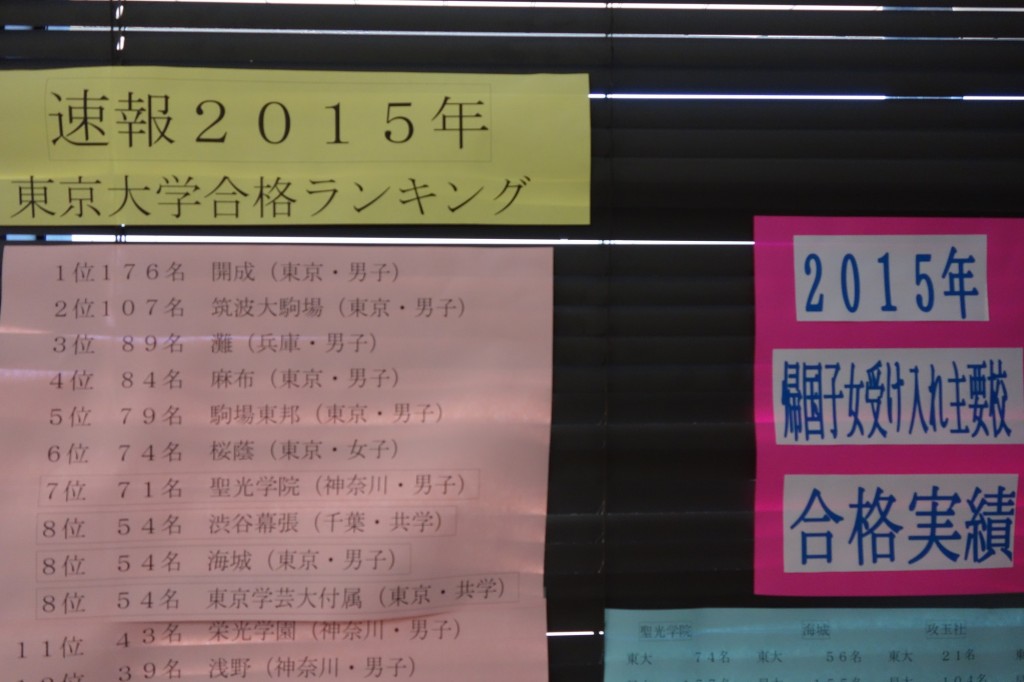 速報２０１５年
東京大学合格ランキング
１位１７６名　開成（東京・男子）
２位１０７名　筑波大駒場（東京・男子）
３位　８９名　灘（兵庫・男子）
４位　８４名　麻布（東京・男子）
５位　７９名　駒場東邦（東京・男子）
６位　７４名　桜蔭（東京・女子）
７位　７１名　聖光学院（神奈川・男子）
８位　５４名　渋谷幕張（千葉・共学）
８位　５４名　海城（東京・男子）
８位　５４名　東京学芸大付属（東京・共学）
１１位　４３名　栄光学園（神奈川・男子）
３９名　浅野（神奈川・男子）
２０１５年
帰国子女受け入れ主要校
合格実績
聖光学院　海城　攻玉社
東大　７４名　東大　５６名　東大　２１名